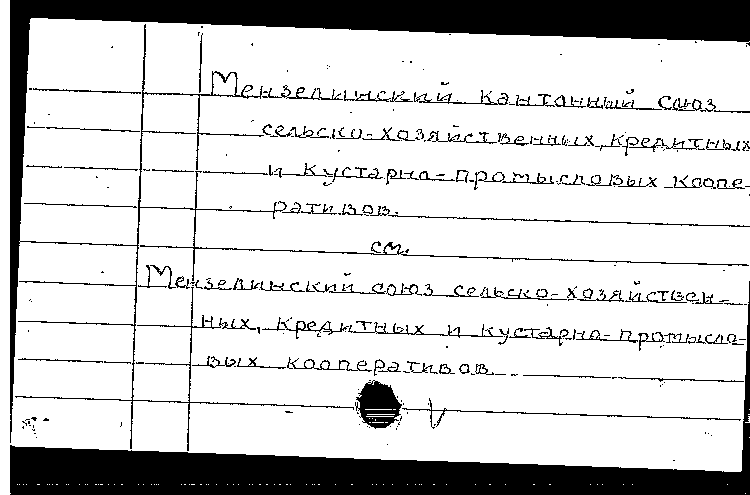 Мензелинский кантонный союз
сельско-хозяйственных, кредитных
и кустарно-промысловых коопе-
ративов.
см.
Мензелинский союз сельско-хозяйствен-
ных, кредитных и кустарно-промысло-
вых кооперативов.